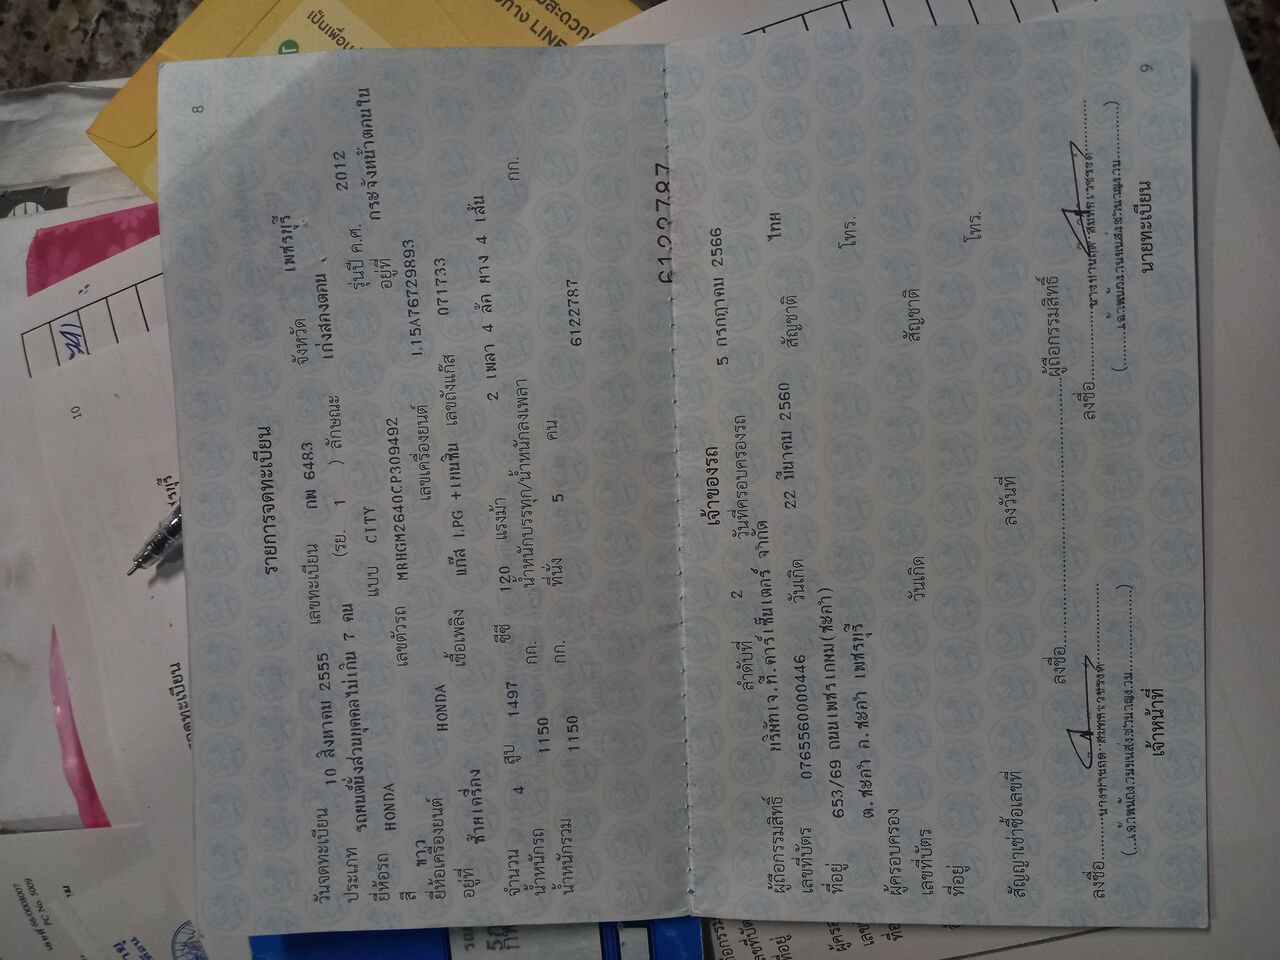 8
รายการจดทะเบียน
วันจดทะเบียน 10 สิงหาคม 2555 เลขทะเบียน กพ 6483 จังหวัด เพชรบุรี
ประเภท รถยนต์นั่งส่วนบุคคลไม่เกิน 7 คน (รย. 1 ) ลักษณะ เก๋งสองตอน
ยี่ห้อรถ HONDA แบบ CITY รุ่นปี ค.ศ. 2012
สี ขาว เลขตัวรถ MRHGM2640CP309492 อยู่ที่ กระจังหน้าตอนใน
ยี่ห้อเครื่องยนต์ HONDA เลขเครื่องยนต์ L15A76729893
อยู่ที่ ซ้ายเครื่อง เชื้อเพลิง แก๊ส LPG +เบนซิน เลขถังแก๊ส 071733
จำนวน 4 สูบ 1497 ซีซี 120 แรงม้า 2 เพลา 4 ล้อ ยาง 4 เส้น
น้ำหนักรถ 1150 กก. น้ำหนักบรรทุก/น้ำหนักลงเพลา กก.
น้ำหนักรวม 1150 กก. ที่นั่ง 5 คน 6122787
6122787
เจ้าของรถ
ลำดับที่ 2 วันที่ครอบครองรถ 5 กรกฎาคม 2566
ผู้ถือกรรมสิทธิ์ บริษัทเจ.ที.คาร์เซ็นเตอร์ จำกัด
เลขที่บัตร 0765560000446 วันเกิด 22 มีนาคม 2560 สัญชาติ ไทย
ที่อยู่ 653/69 ถนนเพชรเกษม(ชะอำ) โทร.
ต.ชะอำ อ.ชะอำ เพชรบุรี
ผู้ครอบครอง
เลขที่บัตร วันเกิด สัญชาติ
ที่อยู่ โทร.
สัญญาเช่าซื้อเลขที่ ลงวันที่
ลงชื่อ ผู้ถือกรรมสิทธิ์
ลงชื่อ ลงชื่อ
เจ้าหน้าที่ นายทะเบียน
9
10
เป็นเพื่อน
ทาง LINE